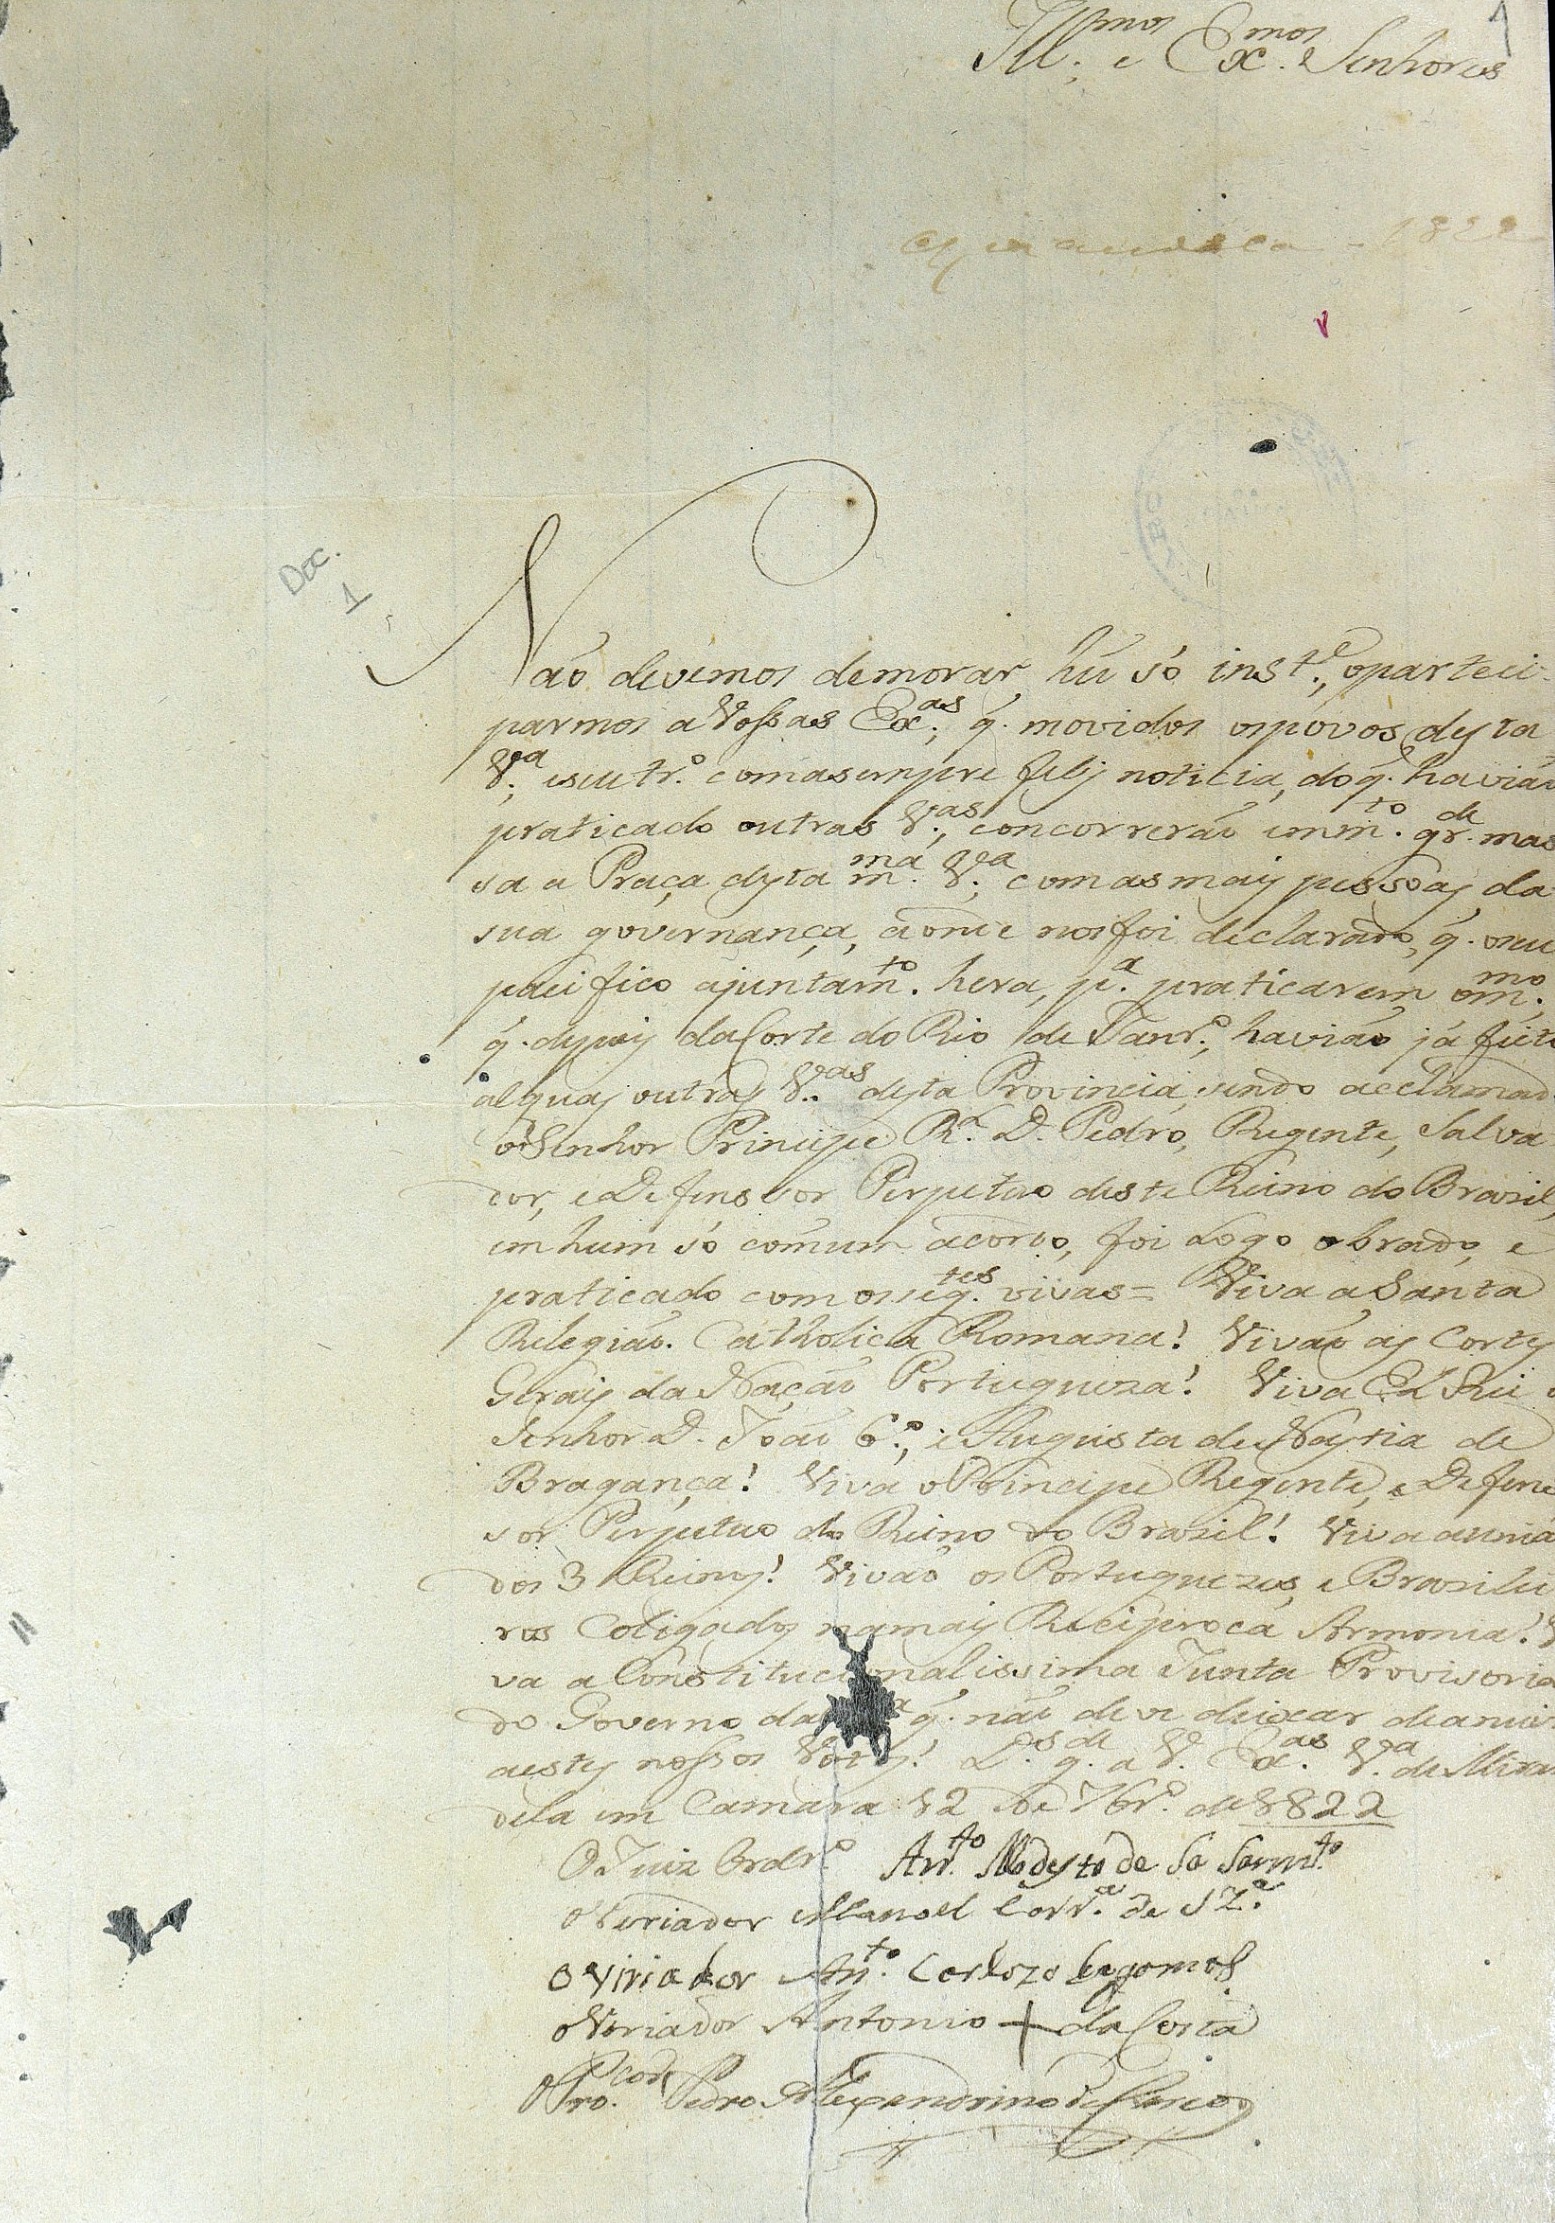 Ill.mos e Ex.mos Senhores
1
1822
Doc.
1
Não devemos demorar hũ só inst.e, oparteci-
parmos a Vossas Ex.as, q̃. movidos ospóvos desta
V.a, eseu tr.o comasempre feliz noticia, do q̃. havião
praticado outras V.as, concorrerão em m.to gr.de mas
sa a Praça desta m.ma V.a, comasmais pessoas da
sua governança, aonde nosfoi declarado, q̃. oseu
pacifico ajuntam.to hera, p.a praticarem om.mo
q̃. depois daCorte do Rio de Janr.o, havião já feito
alguas outras V.as desta Provincia, sendo acclamad
oSenhor Principe R.l D. Pedro, Regente, Salva
dor, eDefensor Perpetuo deste Reino do Brazil,
em hum só cómum acordo, foi Logo obrado, e
praticado com osseg.tes vivas= Viva aSanta
Relegião. Catholica Romana! Vivão as Cortes
Gerais da Nação Portugueza! Viva El Rei o
Senhor D. João 6.o, e Augusta deNastia de
Bragança! Viva oPrincipe Regente, e Defen
sor Perpetuo do Reino do Brazil! Viva aunia
dos 3 Reinos! Vivão os Portuguezes, e Brazilei
ros Coligados namais Reciproca Armonia! V
va a Constitucionalissima Junta Provisoria
do Governo da q̃. não deve deixar deanuir
aestes nossos Votos! D.s g.de a V. Ex.as V.a de Miran
dela em Camara 12 de 7br.o de 1822
O Juiz Ordr.o Ant.o Modesto de Sa Sarm.to
OVeriador Manoel Corr.a de Sz.a
O Viriador An.to Cardozo
oVeriador Antonio + da Costa
O Pro.cor Pedro Alexandrino